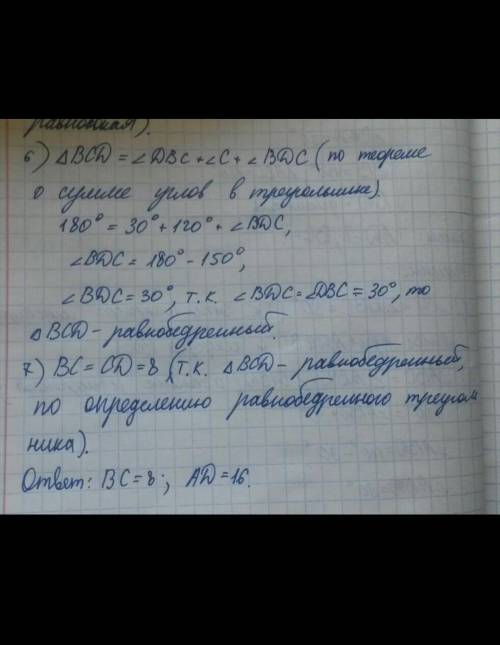 равносная).
6) △BCD = ∠DBC + ∠C + ∠BDC (по теореме
о сумме углов в треугольнике).
180° = 30° + 120° + ∠BDC,
∠BDC = 180° - 150°,
∠BDC = 30°, т.к. ∠BDC = ∠DBC = 30°, то
△BCD - равнобедренный.
7) BC = CD = 8 (т.к. △BCD - равнобедренный,
по определению равнобедренного треугол
ника).
Ответ: BC = 8; AD = 16.